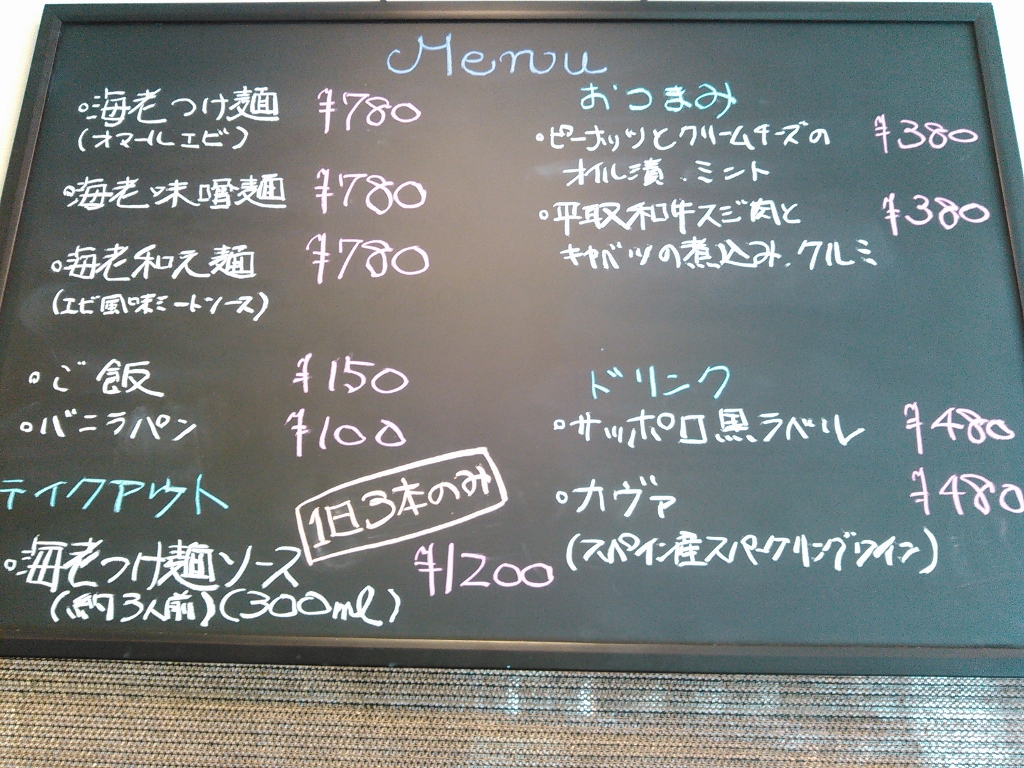 Menu
・海老つけ麺 ¥780
(オマールエビ)
・海老味噌麺 ¥780
・海老和え麺 ¥780
(エビ風味ミートソース)
・ご飯 ¥150
・バニラパン ¥100
テイクアウト
1日3本のみ
・海老つけ麺ソース ¥1200
(約3人前)(300ml)
おつまみ
・ピーナッツとクリームチーズの ¥380
オイル漬.ミント
・平取和牛スジ肉と ¥380
キャベツの煮込み.クルミ
ドリンク
・サッポロ黒ラベル ¥480
・カヴァ ¥480
(スペイン産スパークリングワイン)